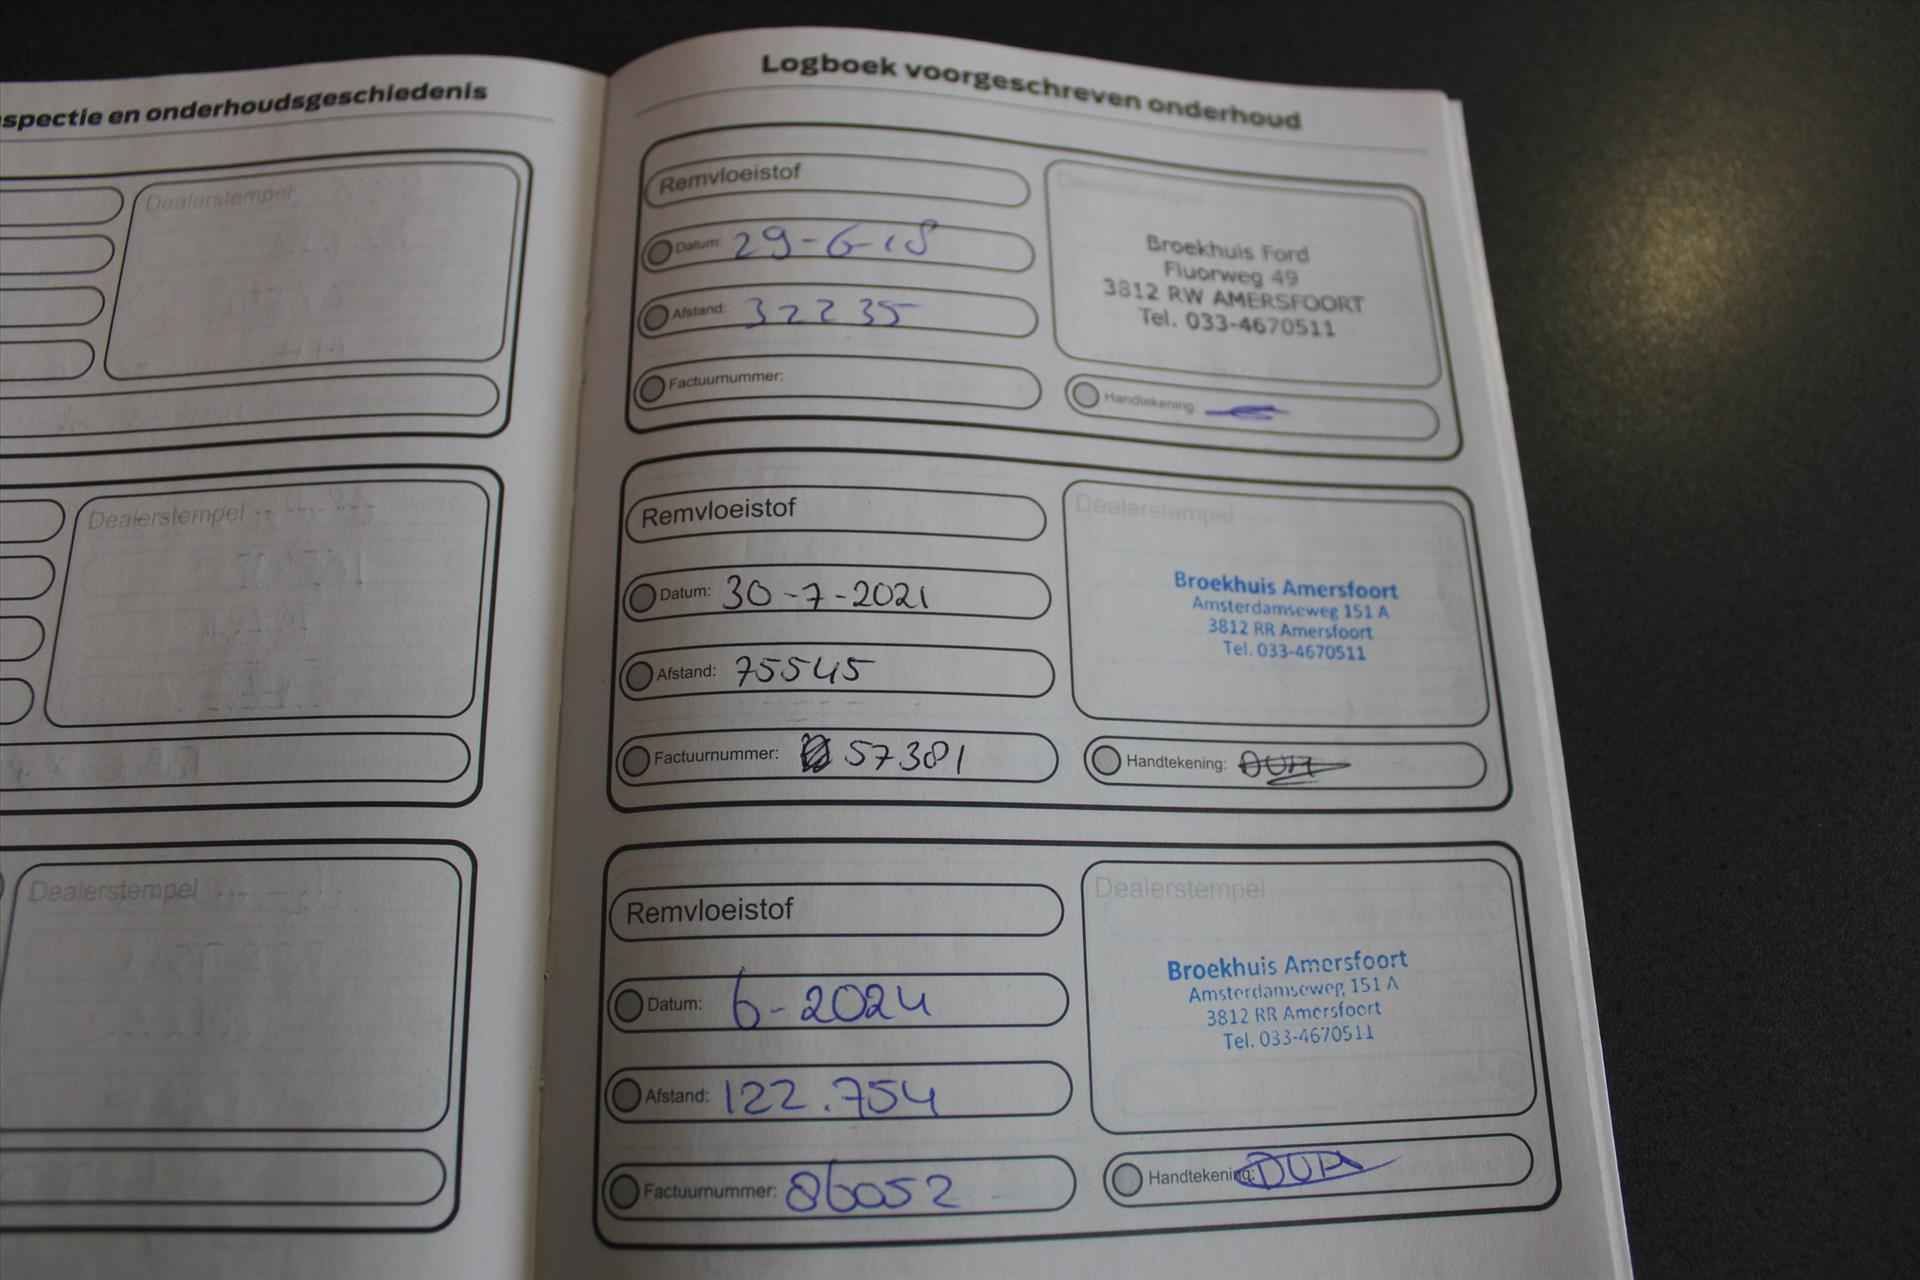 spectie en onderhoudsgeschiedenis
Dealerstempel
Dealerstempel
Dealerstempel
Logboek voorgeschreven onderhoud
Remvloeistof
Datum: 29-6-18
Afstand: 32235
Factuurnummer:
Dealerstempel
Broekhuis Ford
Fluorweg 49
3812 RW AMERSFOORT
Tel. 033-4670511
Handtekening:
Remvloeistof
Datum: 30-7-2021
Afstand: 75545
Factuurnummer: 57381
Dealerstempel
Broekhuis Amersfoort
Amsterdamseweg 151 A
3812 RR Amersfoort
Tel. 033-4670511
Handtekening:
Remvloeistof
Datum: 6-2024
Afstand: 122.754
Factuurnummer: 86052
Dealerstempel
Broekhuis Amersfoort
Amsterdamseweg 151 A
3812 RR Amersfoort
Tel. 033-4670511
Handtekening: